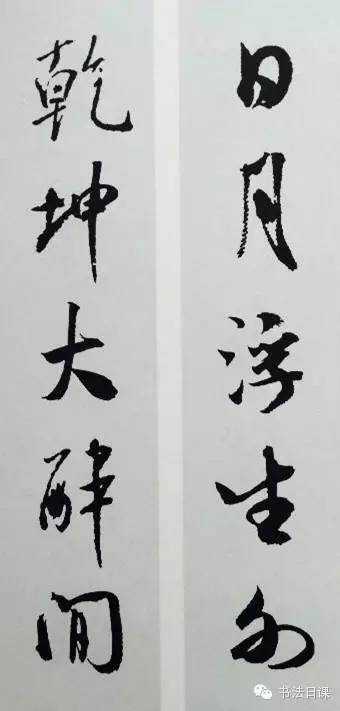 日月浮生外
乾坤大醉間
书法日课